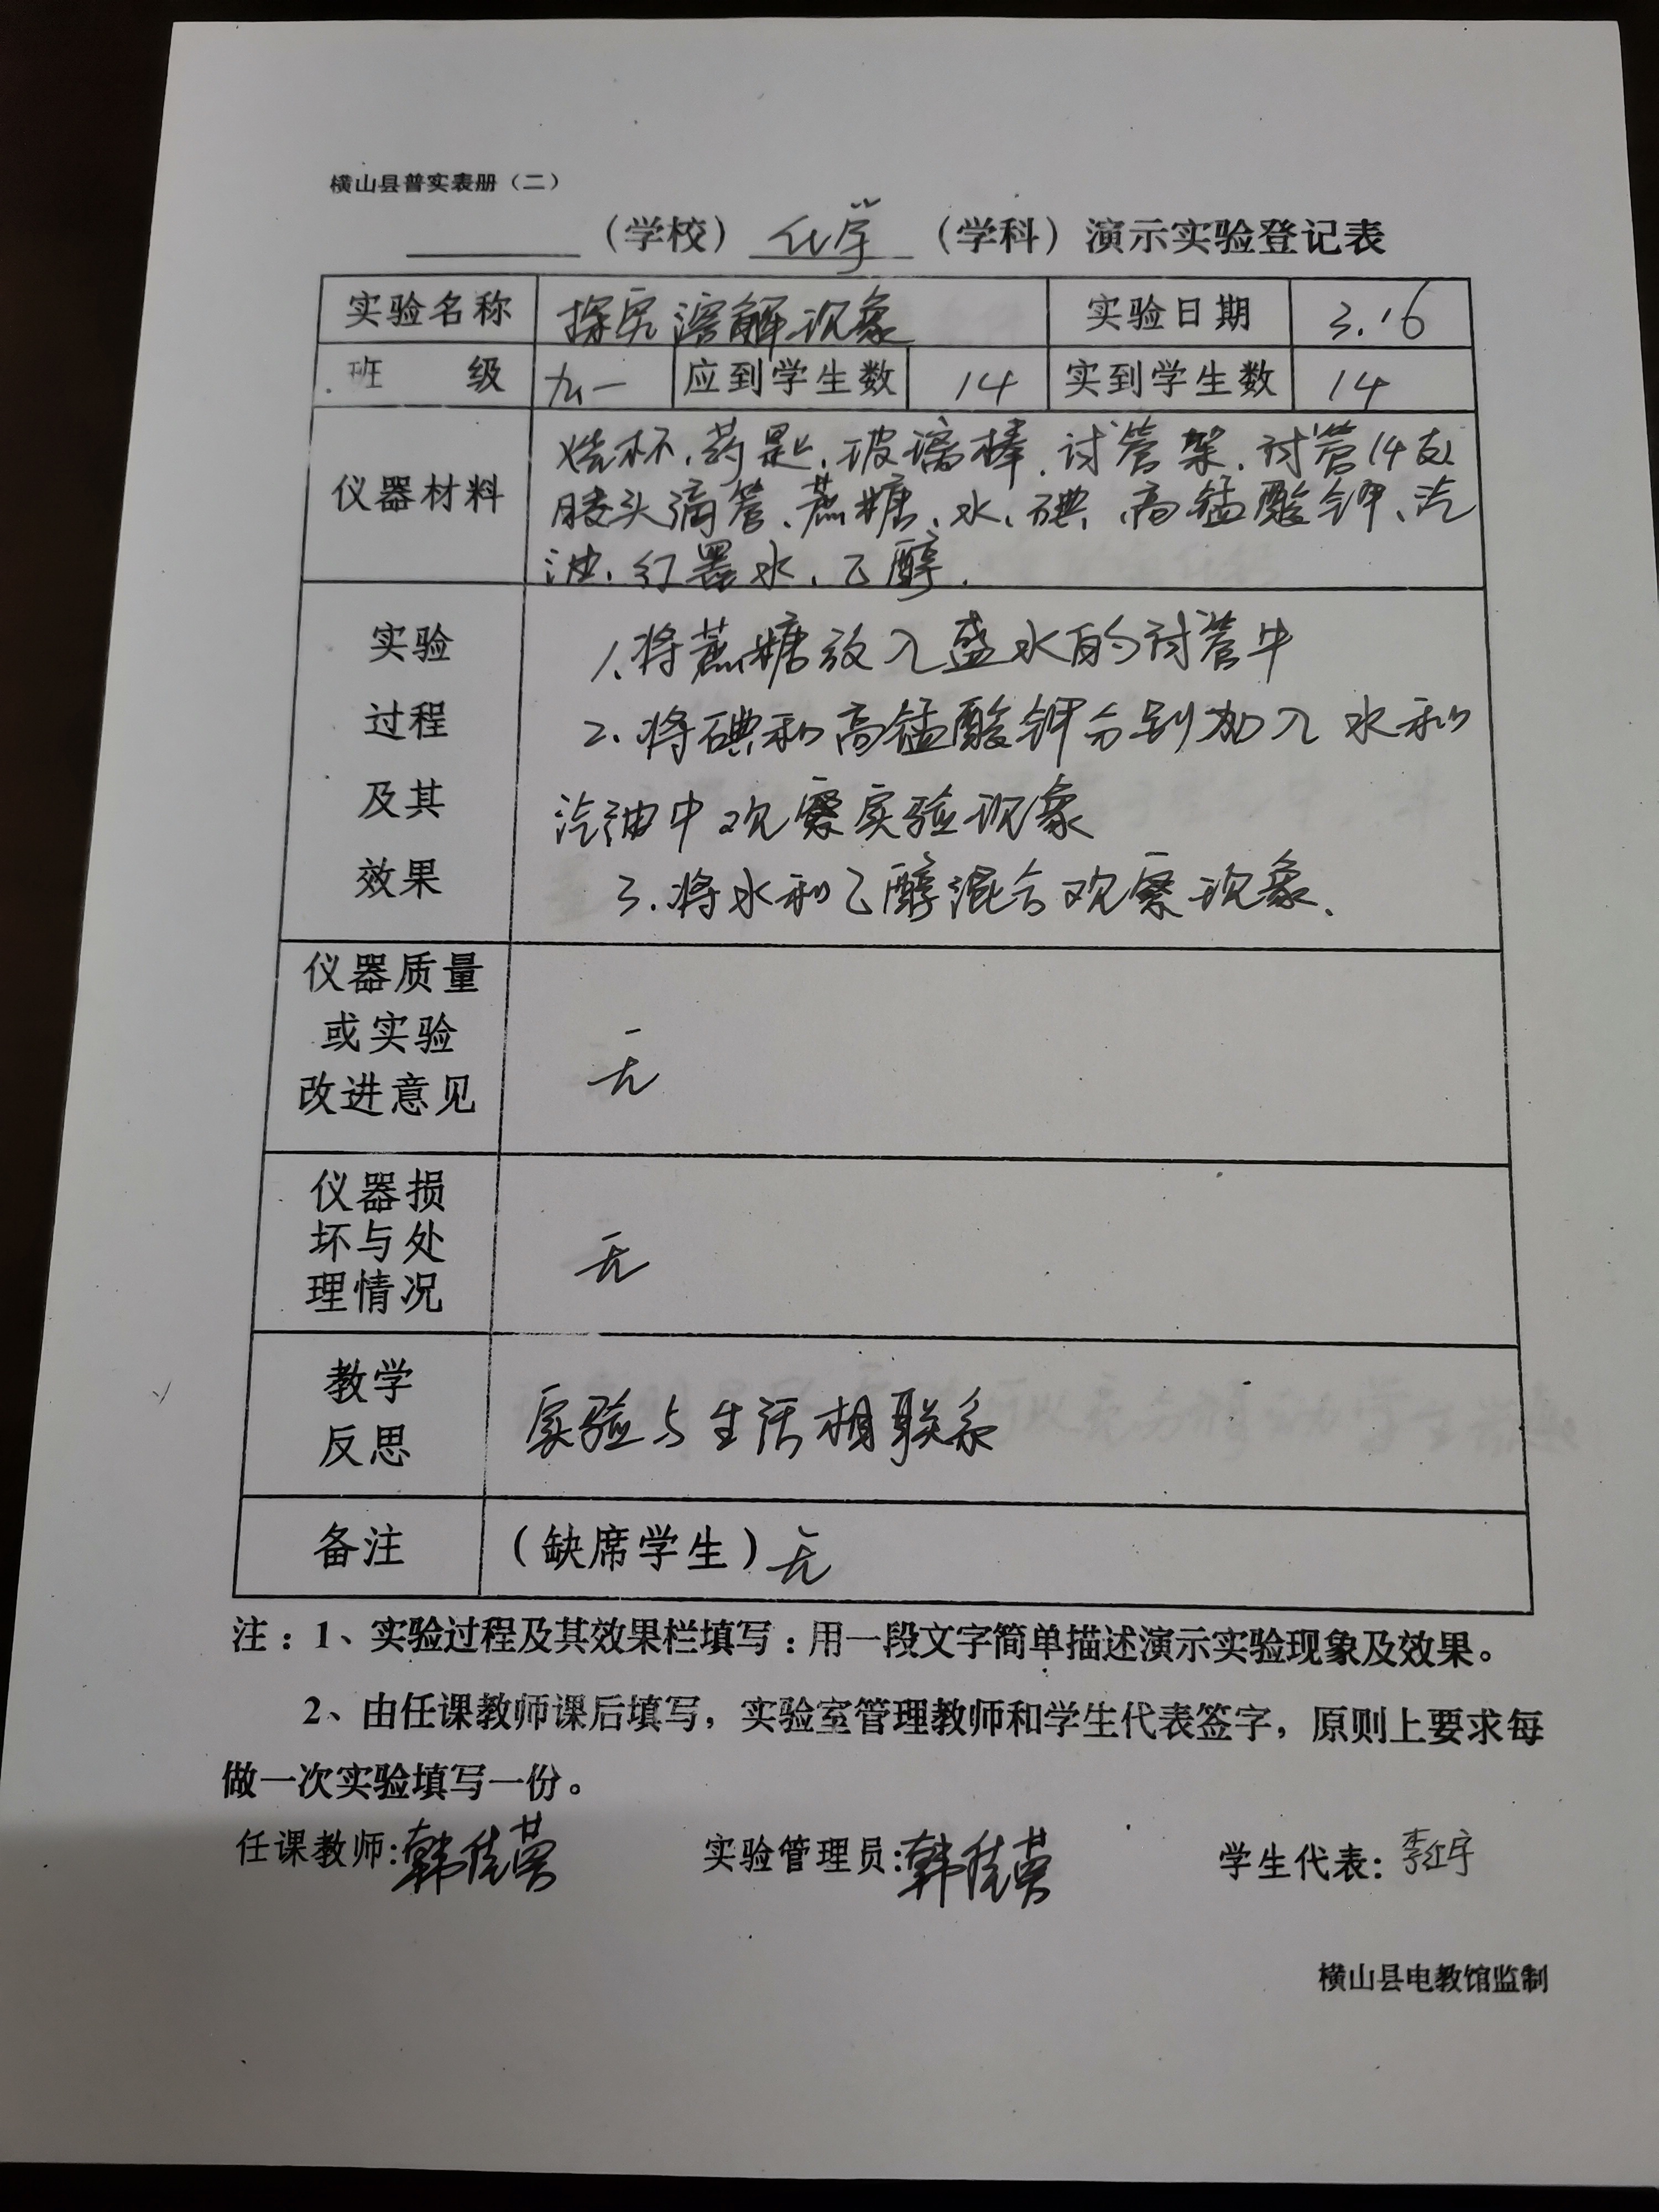 横山县普实表册（二）
（学校）化学（学科）演示实验登记表
实验名称 探究溶解现象 实验日期 3.16
班级 九一 应到学生数 14 实到学生数 14
仪器材料
烧杯、药匙、玻璃棒、试管架、试管14支
胶头滴管、蔗糖、水、碘、高锰酸钾、汽
油、红墨水、乙醇.
实验
过程
及其
效果
1.将蔗糖放入盛水的试管中
2.将碘和高锰酸钾分别加入水和
汽油中观察实验现象
3.将水和乙醇混合观察现象.
仪器质量
或实验
改进意见
无
仪器损
坏与处
理情况
无
教学
反思
实验与生活相联系
备注 （缺席学生）无
注：1、实验过程及其效果栏填写：用一段文字简单描述演示实验现象及效果。
2、由任课教师课后填写，实验室管理教师和学生代表签字，原则上要求每
做一次实验填写一份。
任课教师:韩佳荣 实验管理员:韩佳荣 学生代表:李红宇
横山县电教馆监制